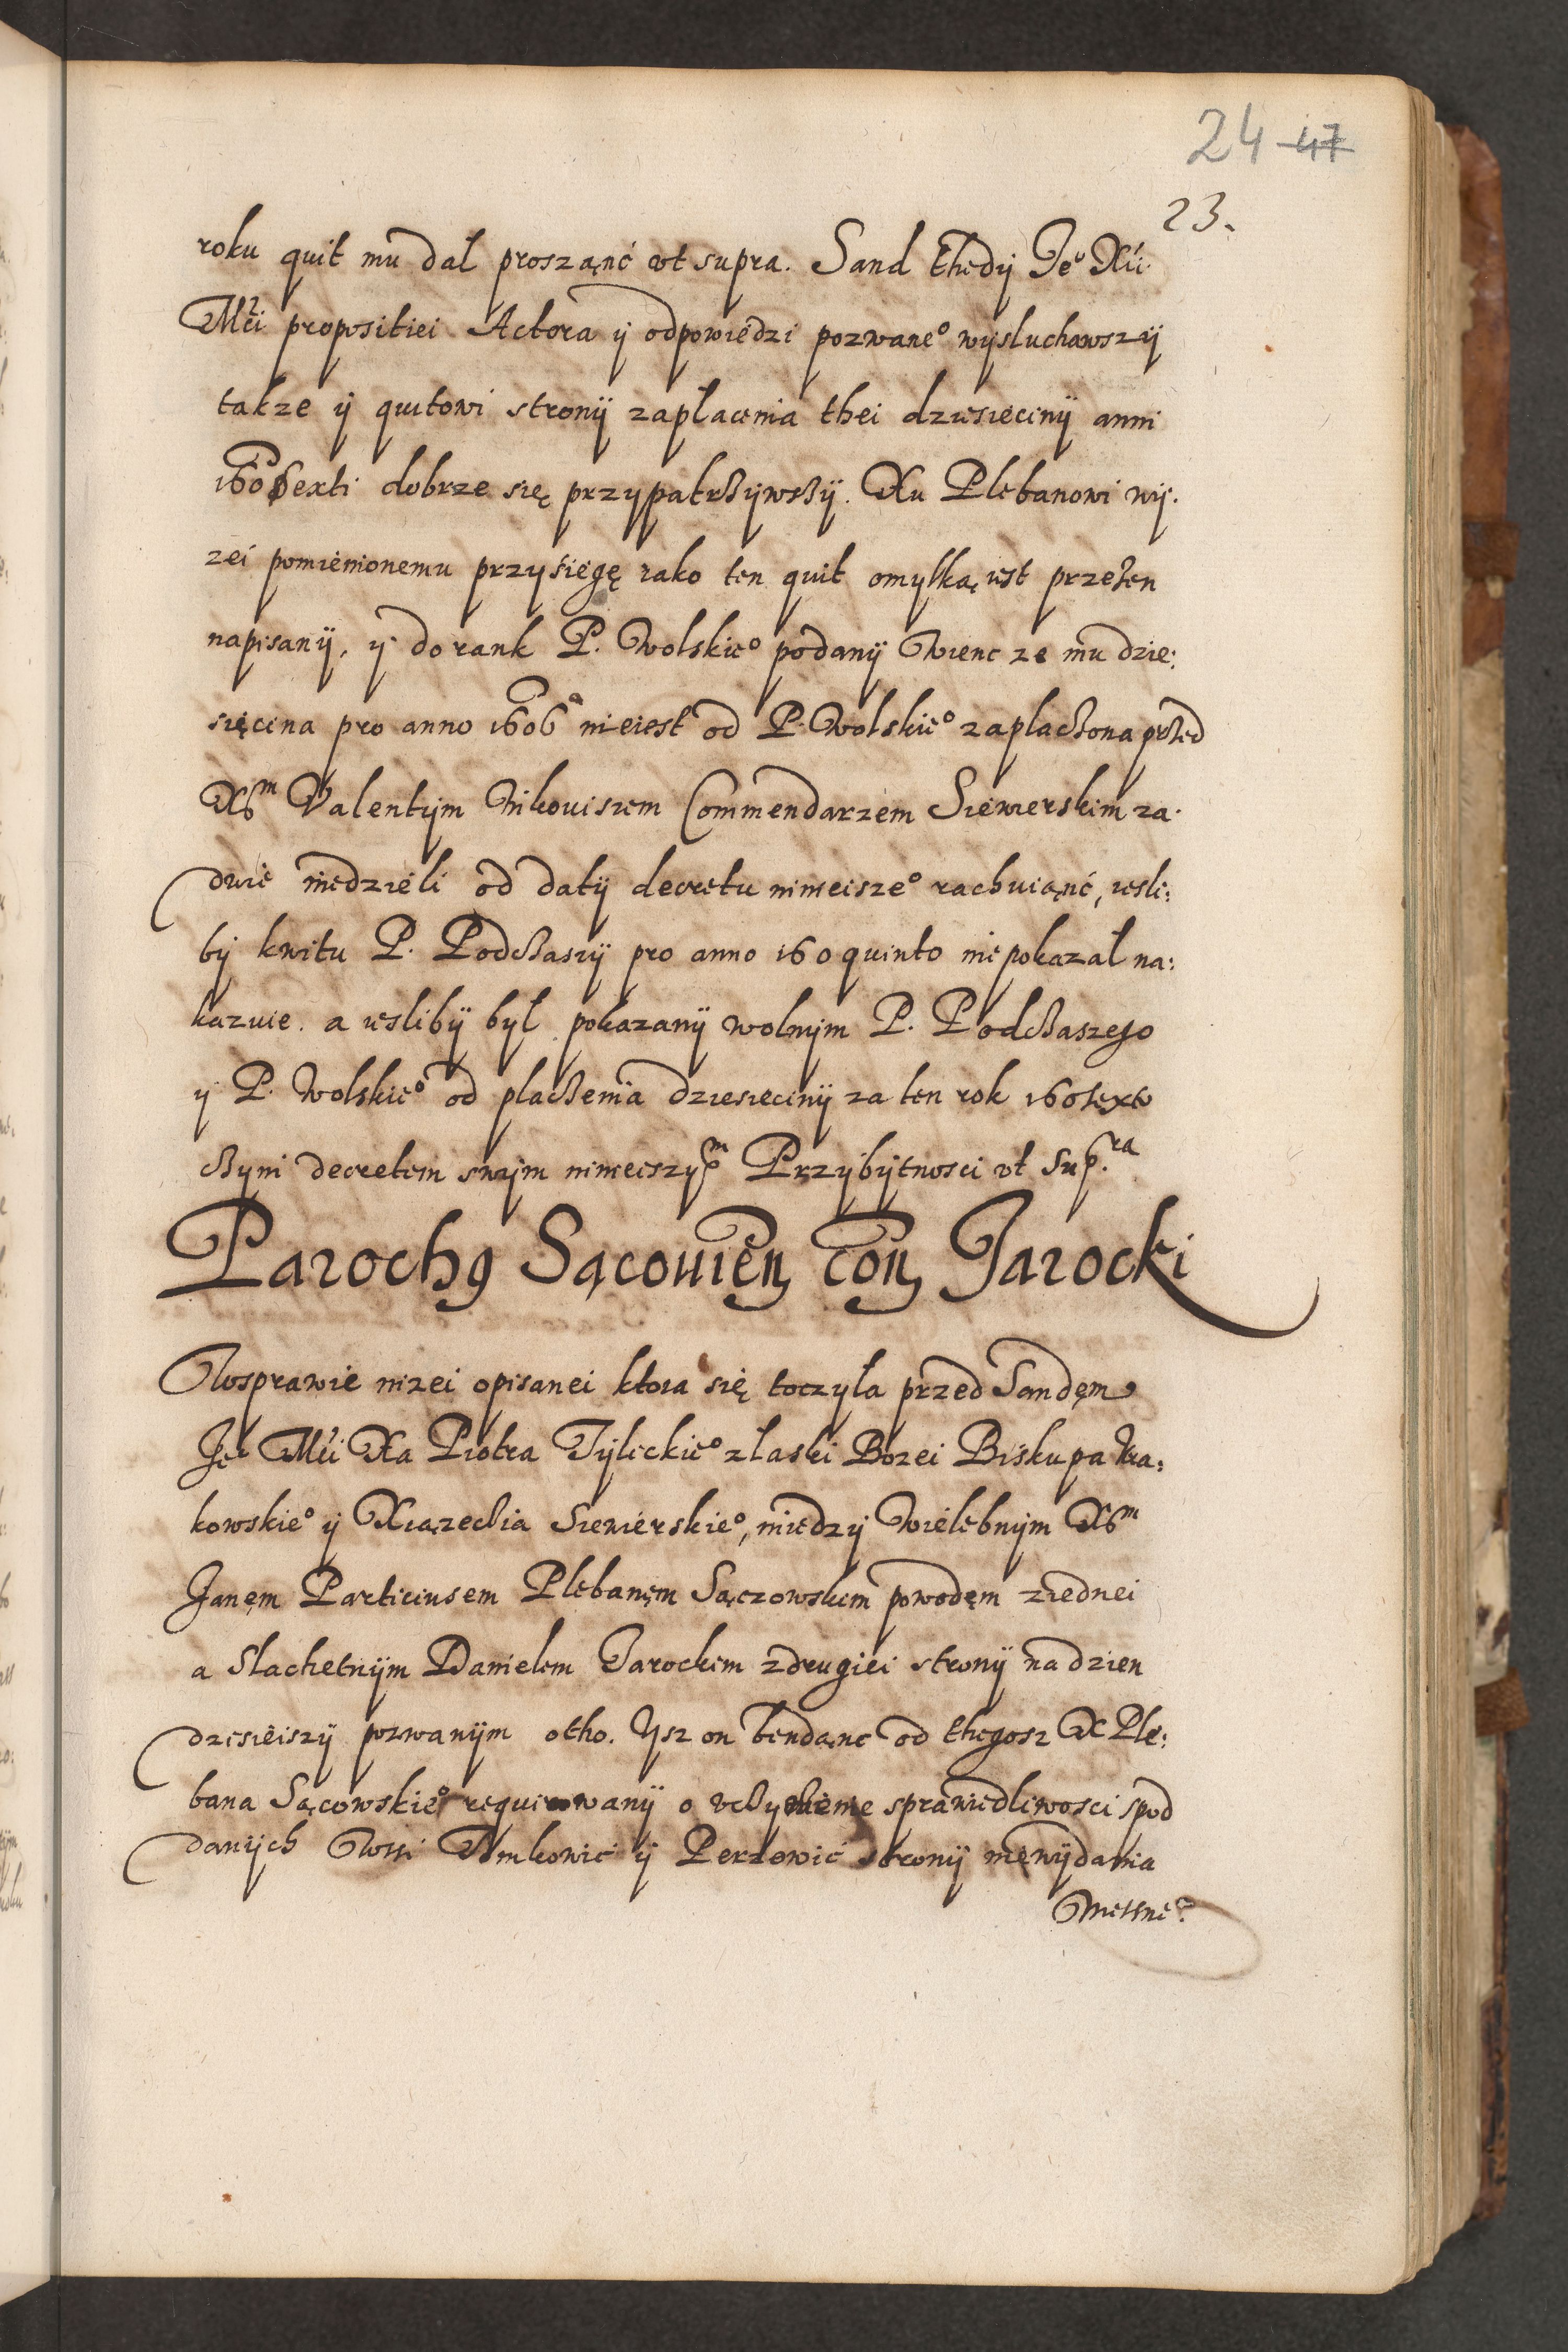 24 47
23.
roku quit mu dal prosząnć vt supra. Sand thedÿ Jeº Xći
Mći propositiei Actora ÿ odpowiedzi pozwaneº wÿsluchawszÿ
takze ÿ quitowi stronÿ zaplacenia thei dziesiecinÿ anni
160 sexti dobrze się przypatrzÿwszÿ. Xu Plebanowi wÿ.
zei pomienionemu przysiegę iako ten quit omyłką iest przeten
napisanÿ, ÿ do rank P. Wolskieº podanÿ Wienc ze mu dzie:
sięcina pro anno 1606 nieiest od P. Wolskieº zaplaczona przed
Xem Valentÿm Commendarzem Siewierskim za.
dwie niedzieli od datÿ decretu ninieiszeº rachuiąnć, iesli:
bÿ kwitu P. Podczaszÿ pro anno 160 quinto nie pokazal na:
kazuie. a iesliby był pokazanÿ wolnÿm P. Podczaszego
ÿ P. Wolskieº od placzenia dziesiecinÿ za ten rok 160 sexto
czÿni decretem swÿm ninieiszym Przÿbÿtnosci vt Sup.ra
Parochg Sącouien con Jarocki
W sprawie nizei opisanei ktora się toczyla przed Sandęm
Jeº Mći Xa Piotra Tÿlickieº z laski Bozei Biskupa Kra:
kowskieº ÿ Xiązeczia Siewierskieº, miedzÿ Wielebnÿm Xem
Janęm Particiusem Plebanęm Sączowskim powodęm ziednei
a Slachetnÿm Danielem Jarockim z drugiei stronÿ na dzien
dzisieiszÿ pozwanÿm otho. Ysz on bendąnc od thegosz X Ple:
bana Sącowskieº requirowanÿ o vczynienie sprawiedliwosci spod
danÿch Wssi ÿ stronÿ niewÿdania
Messneº